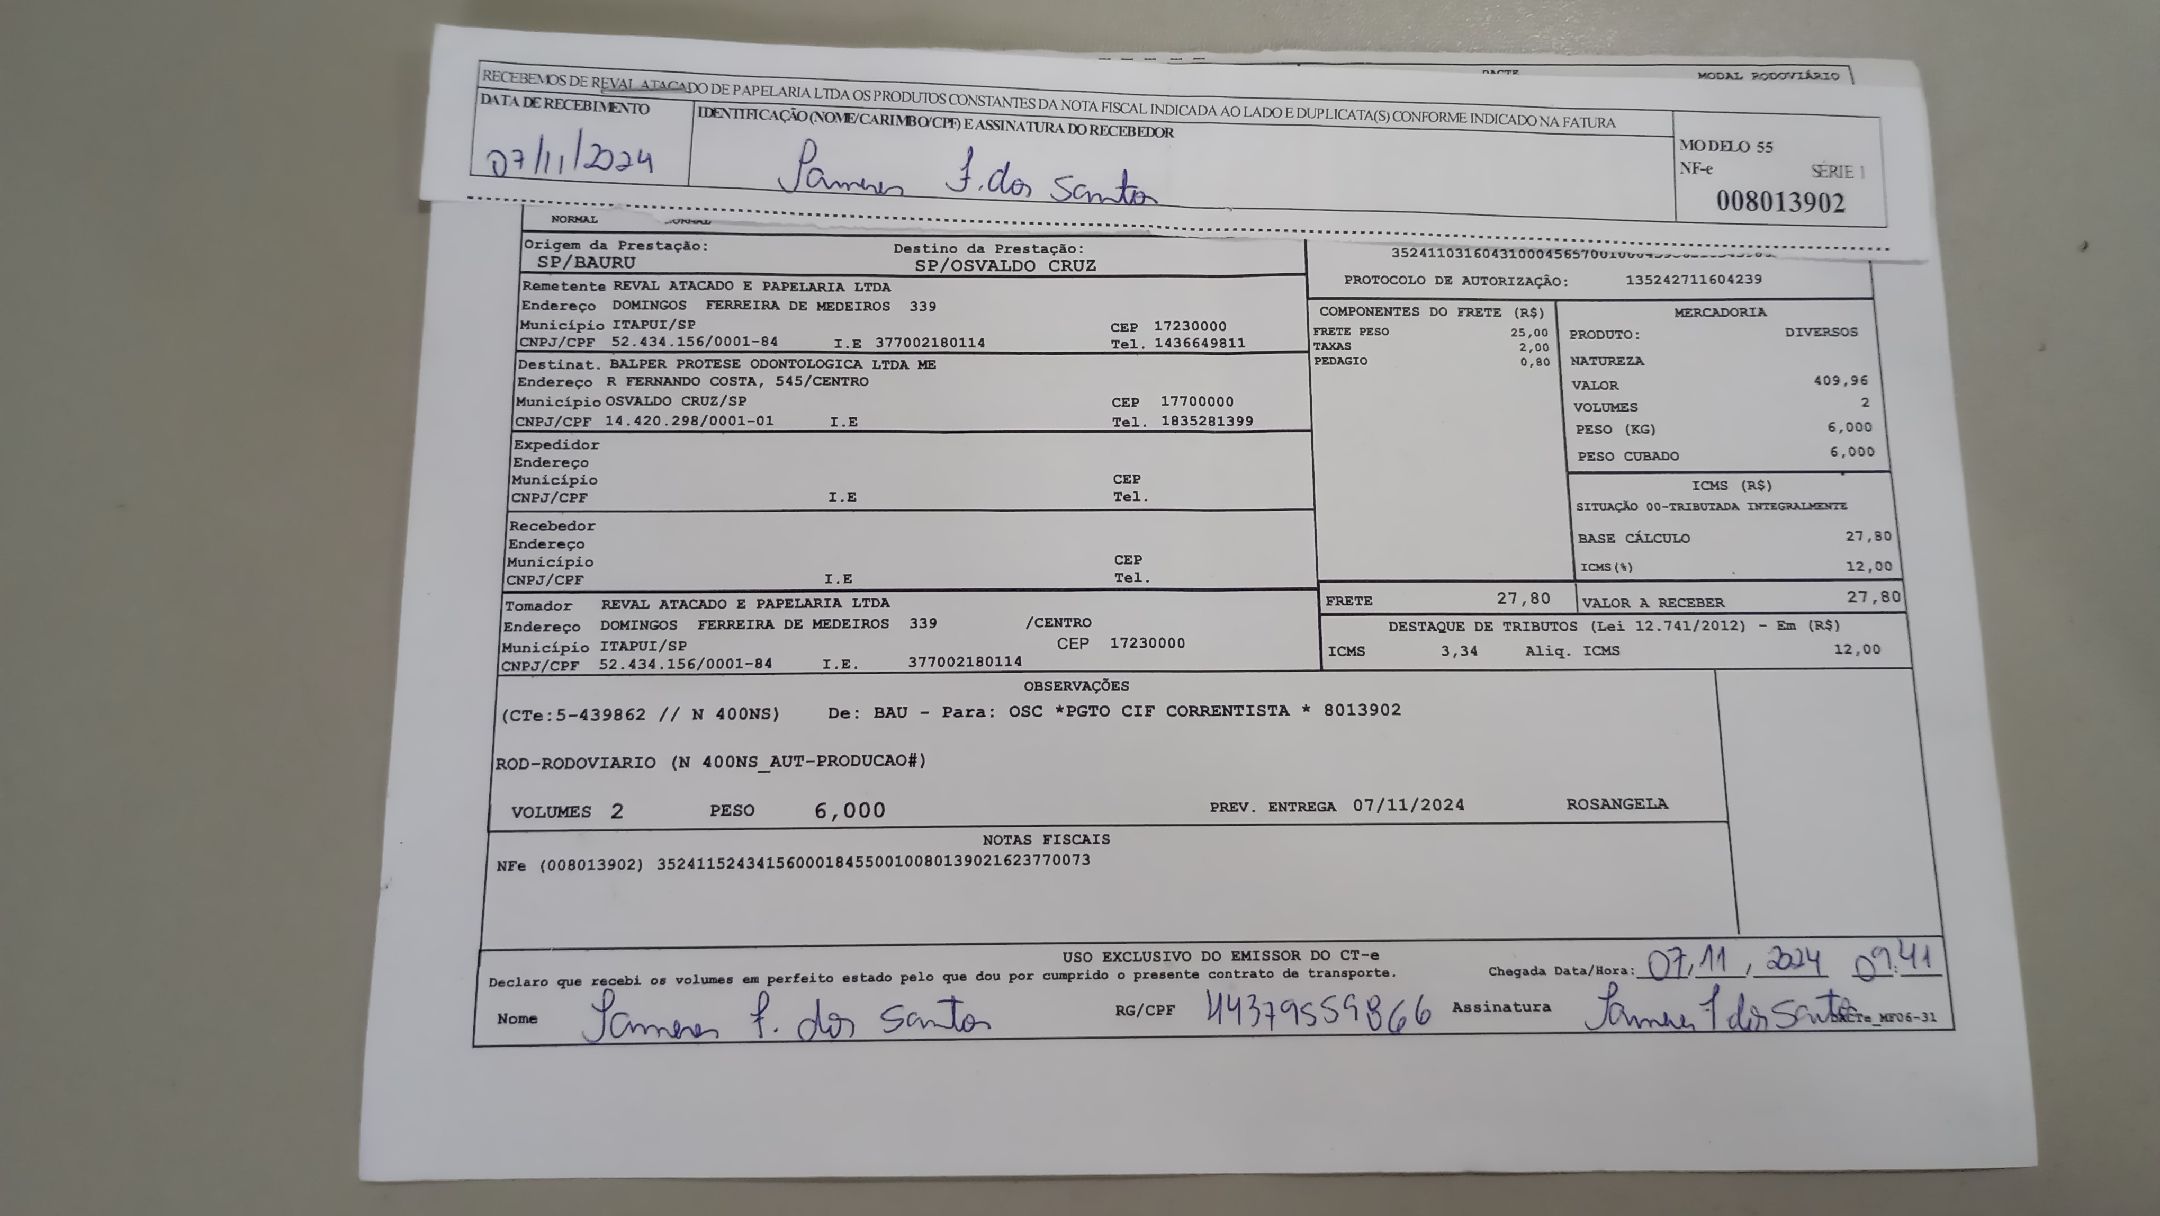 MODAL RODOVIÁRIO
RECEBEMOS DE REVAL ATACADO DE PAPELARIA LTDA OS PRODUTOS CONSTANTES DA NOTA FISCAL INDICADA AO LADO E DUPLICATA(S) CONFORME INDICADO NA FATURA
DATA DE RECEBIMENTO
07/11/2024
IDENTIFICAÇÃO (NOME/CARIMBO/CPF) E ASSINATURA DO RECEBEDOR
F. dos Santos
MODELO 55
NF-e SÉRIE 1
008013902
NORMAL
Origem da Prestação: Destino da Prestação:
SP/BAURU SP/OSVALDO CRUZ
PROTOCOLO DE AUTORIZAÇÃO: 135242711604239
Remetente REVAL ATACADO E PAPELARIA LTDA
Endereço DOMINGOS FERREIRA DE MEDEIROS 339
Município ITAPUI/SP CEP 17230000
CNPJ/CPF 52.434.156/0001-84 I.E 377002180114 Tel. 1436649811
Destinat. BALPER PROTESE ODONTOLOGICA LTDA ME
Endereço R FERNANDO COSTA, 545/CENTRO
Município OSVALDO CRUZ/SP CEP 17700000
CNPJ/CPF 14.420.298/0001-01 I.E Tel. 1835281399
Expedidor
Endereço
Município CEP
CNPJ/CPF I.E Tel.
Recebedor
Endereço
Município CEP
CNPJ/CPF I.E Tel.
Tomador REVAL ATACADO E PAPELARIA LTDA
Endereço DOMINGOS FERREIRA DE MEDEIROS 339 /CENTRO
Município ITAPUI/SP CEP 17230000
CNPJ/CPF 52.434.156/0001-84 I.E. 377002180114
COMPONENTES DO FRETE (R$)
FRETE PESO 25,00
TAXAS 2,00
PEDAGIO 0,80
MERCADORIA
PRODUTO: DIVERSOS
NATUREZA
VALOR 409,96
VOLUMES 2
PESO (KG) 6,000
PESO CUBADO 6,000
ICMS (R$)
SITUAÇÃO 00-TRIBUTADA INTEGRALMENTE
BASE CÁLCULO 27,80
ICMS(%) 12,00
FRETE 27,80 VALOR A RECEBER 27,80
DESTAQUE DE TRIBUTOS (Lei 12.741/2012) - Em (R$)
ICMS 3,34 Aliq. ICMS 12,00
OBSERVAÇÕES
(CTe:5-439862 // N 400NS) De: BAU - Para: OSC *PGTO CIF CORRENTISTA * 8013902
ROD-RODOVIARIO (N 400NS_AUT-PRODUCAO#)
VOLUMES 2 PESO 6,000 PREV. ENTREGA 07/11/2024 ROSANGELA
NOTAS FISCAIS
NFe (008013902) 35241152434156000184550010080139021623770073
USO EXCLUSIVO DO EMISSOR DO CT-e
Declaro que recebi os volumes em perfeito estado pelo que dou por cumprido o presente contrato de transporte. Chegada Data/Hora: 07,11,2024 09:41
Nome F. dos Santos RG/CPF 44379559866 Assinatura F dos Santos DACTe_MF06-31